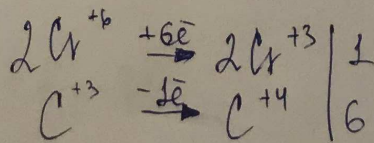 2Cr⁺⁶ +6ē → 2Cr⁺³ | 1
C⁺³ -1ē → C⁺⁴ | 6